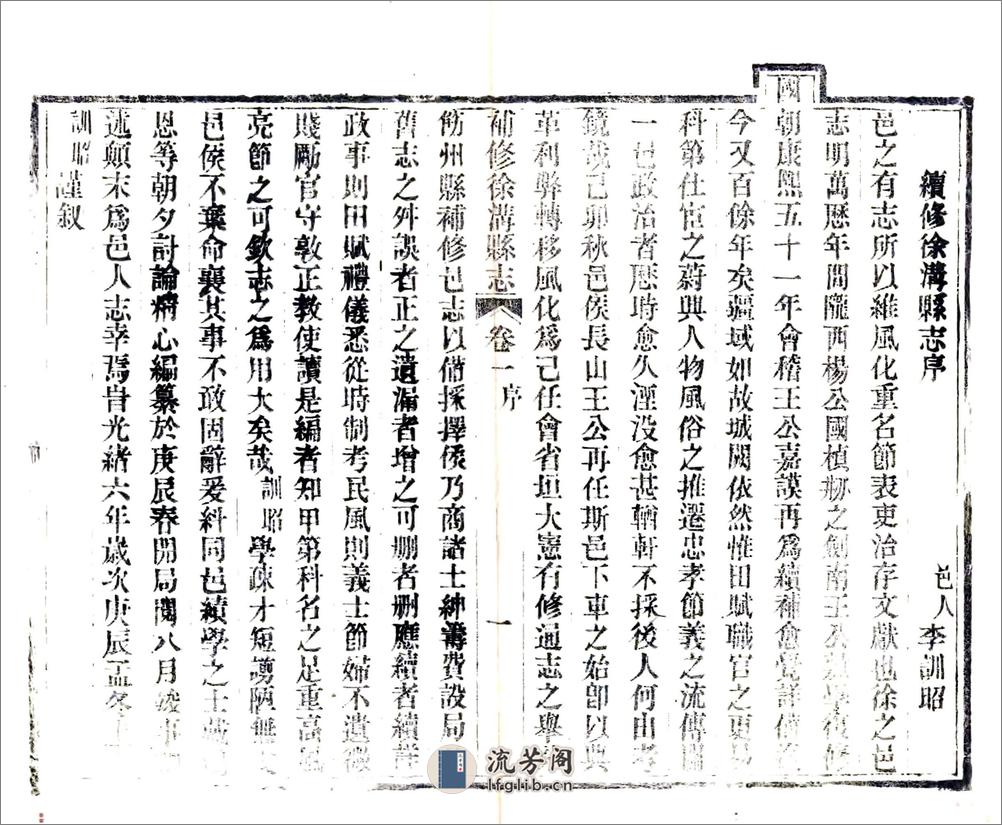 續修徐溝縣志序
邑人 李訓昭
邑之有志所以維風化重名節表吏治存文獻也徐之邑
志明萬歷年間隴西楊公國楨
國
朝康熙五十一年會稽王公嘉謨再爲續補愈覺詳備
今又百餘年矣疆域如故城闕依然惟田賦職官之更易
科第仕宦之蔚興人物風俗之推遷忠孝節義之流傳關
一邑政治者歷時愈久湮没愈甚輶軒不採後人何由考
鏡哉己卯秋邑侯長山王公再任斯邑下車之始卽以興
革利弊轉移風化爲己任會省垣大憲有修通志之舉
補修徐溝縣志 卷一序 一
飭州縣補修邑志以備採擇侯乃商諸士紳籌費設局
舊志之舛誤者正之遺漏者增之可删者删應續者續
政事則田賦禮儀悉從時制考民風則義士節婦不遺微
賤勵官守敦正教使讀是編者知甲第科名之足重高風
亮節之可欽志之爲用大矣哉訓昭學疎才短謭陋無
邑侯不棄命襄其事不敢固辭爰糾同邑績學之士
恩等朝夕討論精心編纂於庚辰春開局閱八月竣事
述顛末爲邑人志幸焉旹光緒六年歲次庚辰孟冬
訓昭謹叙
流芳阁
lfglib.cn